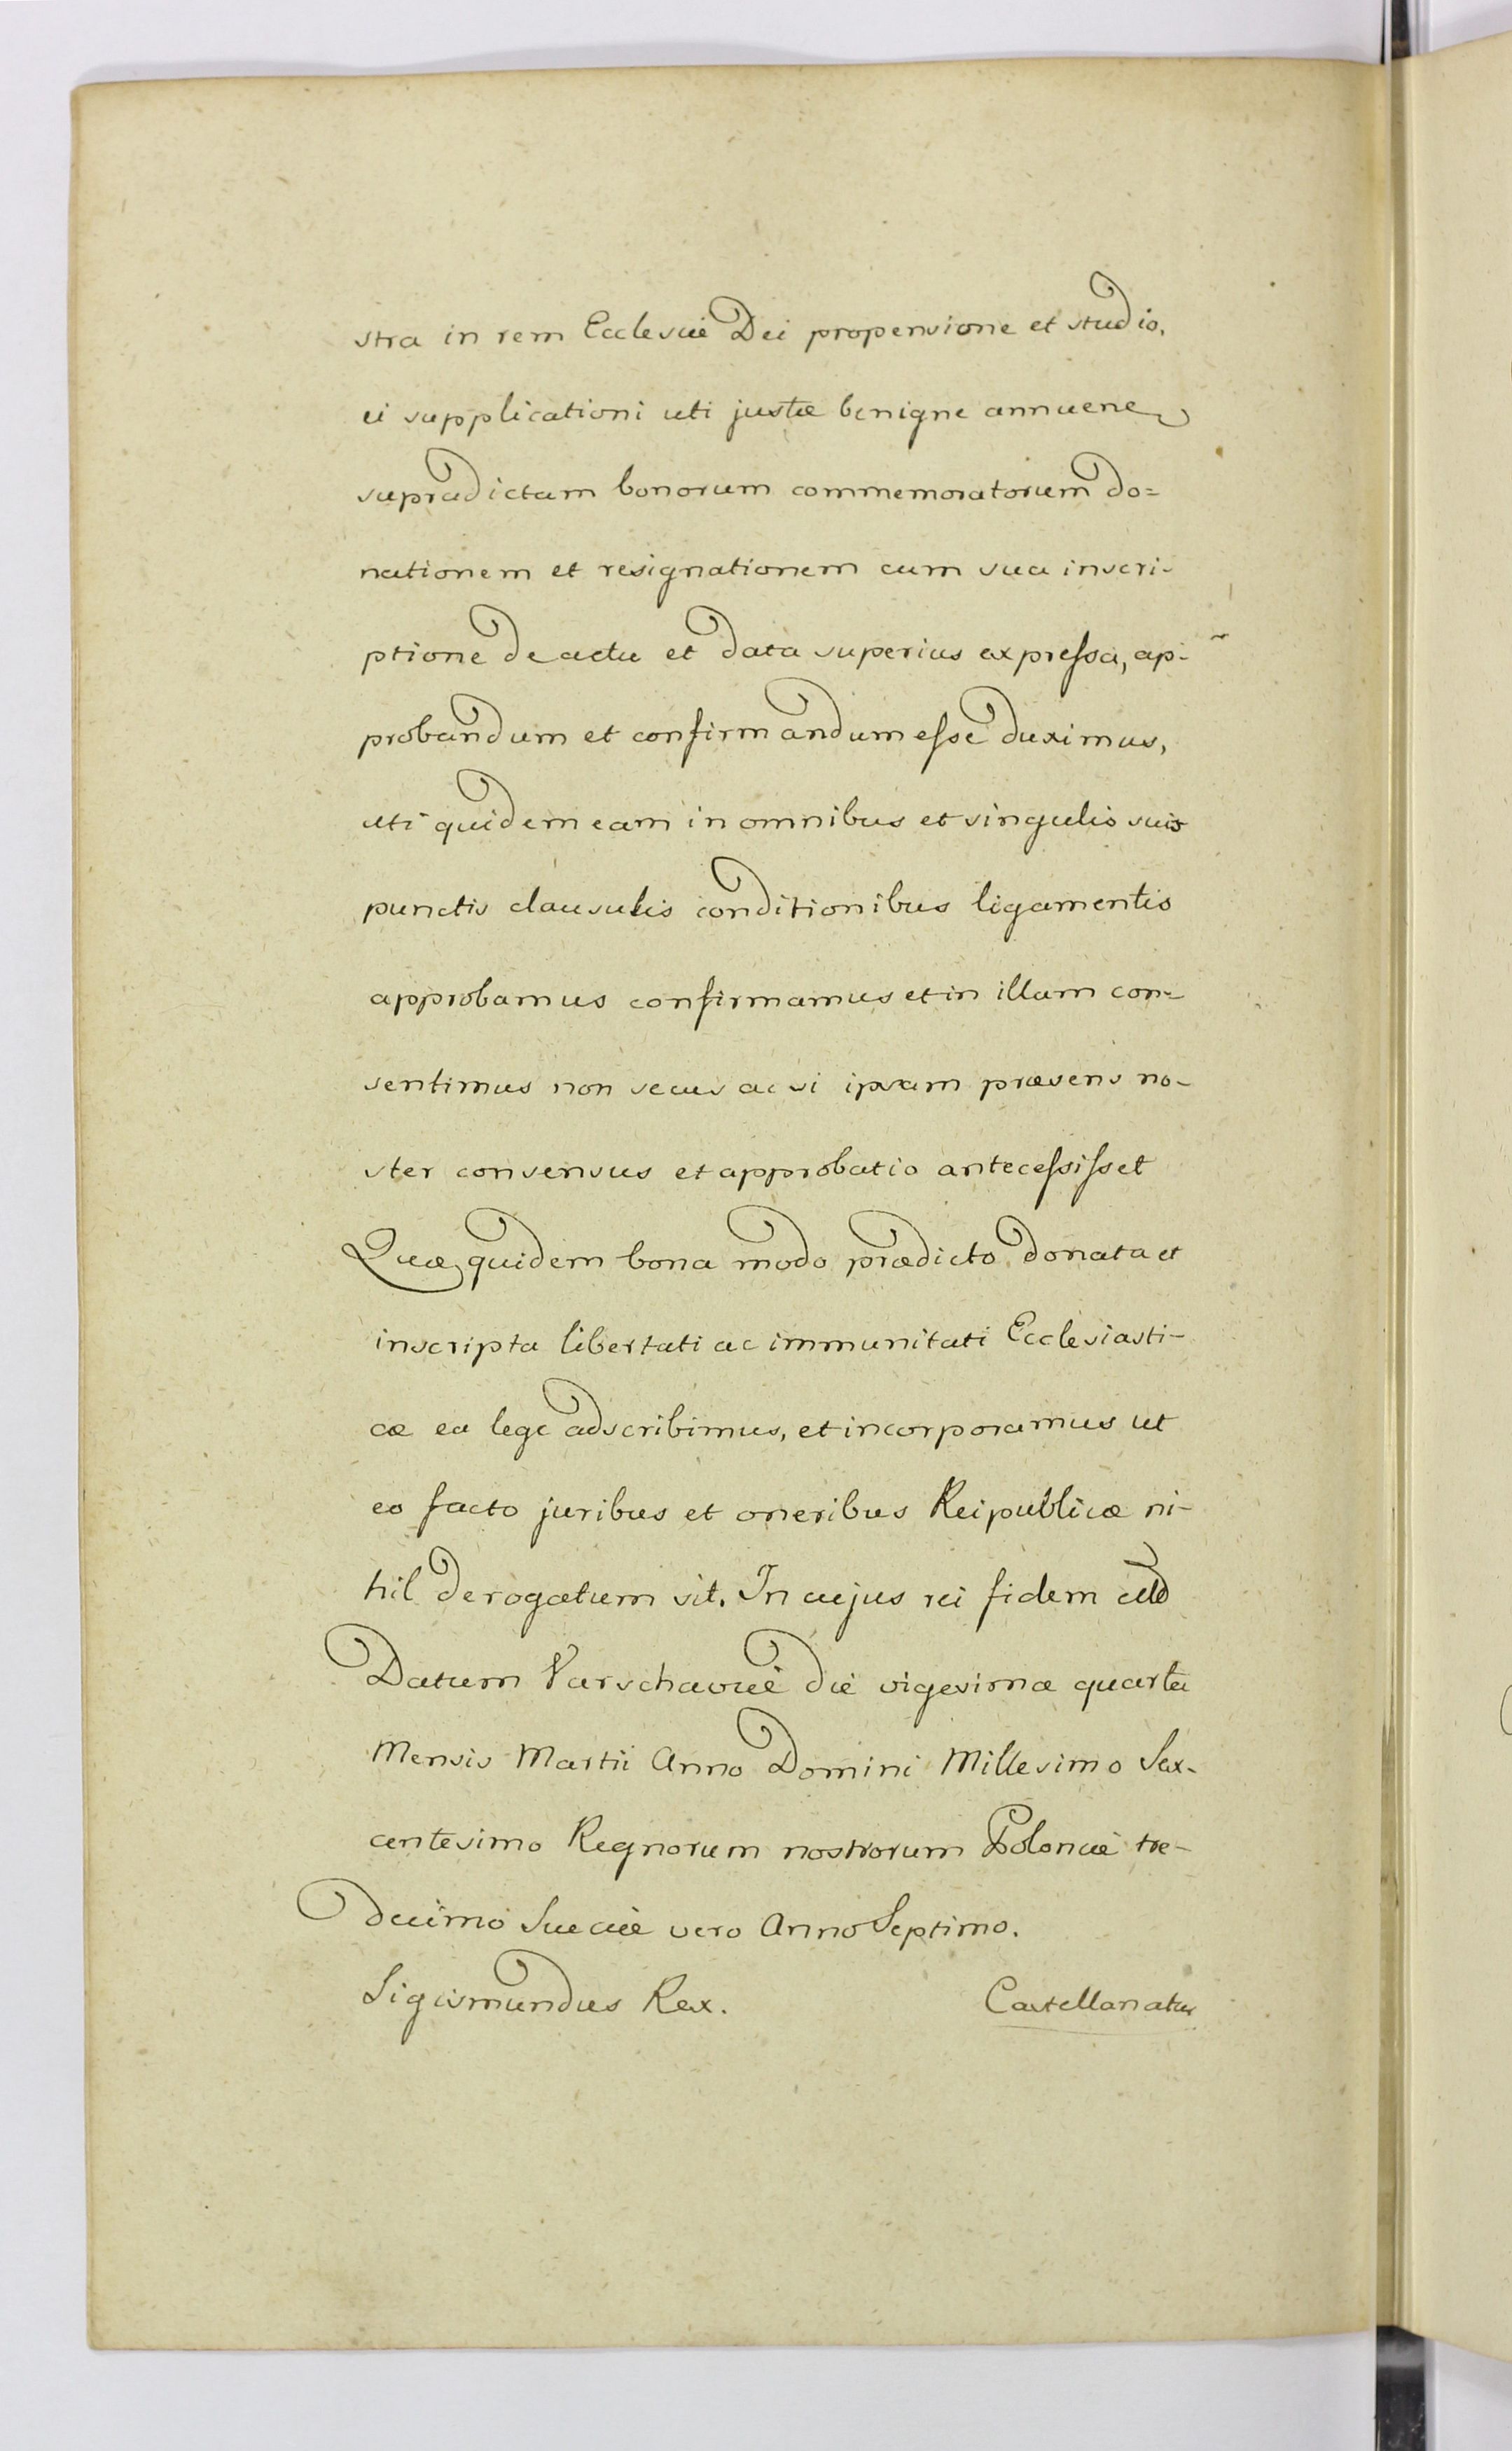 stra in rem Ecclesiæ Dei propensione et studio,
ei supplicationi uti justæ benigne annuene
supradictam bonorum commemoratorum do=
nationem et resignationem cum sua inscri-
ptione de actu et data superius expressa, ap-
probandum et confirmandum esse duximus,
uti quidem eam in omnibus et singulis suis
punctis clausulis conditionibus ligamentis
approbamus confirmamus et in illam con-
sentimus non secus ac si ipsam præsens no-
ster consensus et approbatio antecessisset
Quæ quidem bona modo prædicto donata et
inscripta libertati ac immunitati Ecclesiasti-
cæ ea lege adscribimus, et incorporamus ut
eo facto juribus et oneribus Reipublicæ ni-
hil derogatum sit. In cujus rei fidem
Datum Varschaviæ die vigesima quarta
Mensis Martii Anno Domini Millesimo Sex-
centesimo Regnorum nostrorum Poloniæ tre-
decimo Sueciæ vero Anno Septimo.
Sigismundus Rex. Castellanatus